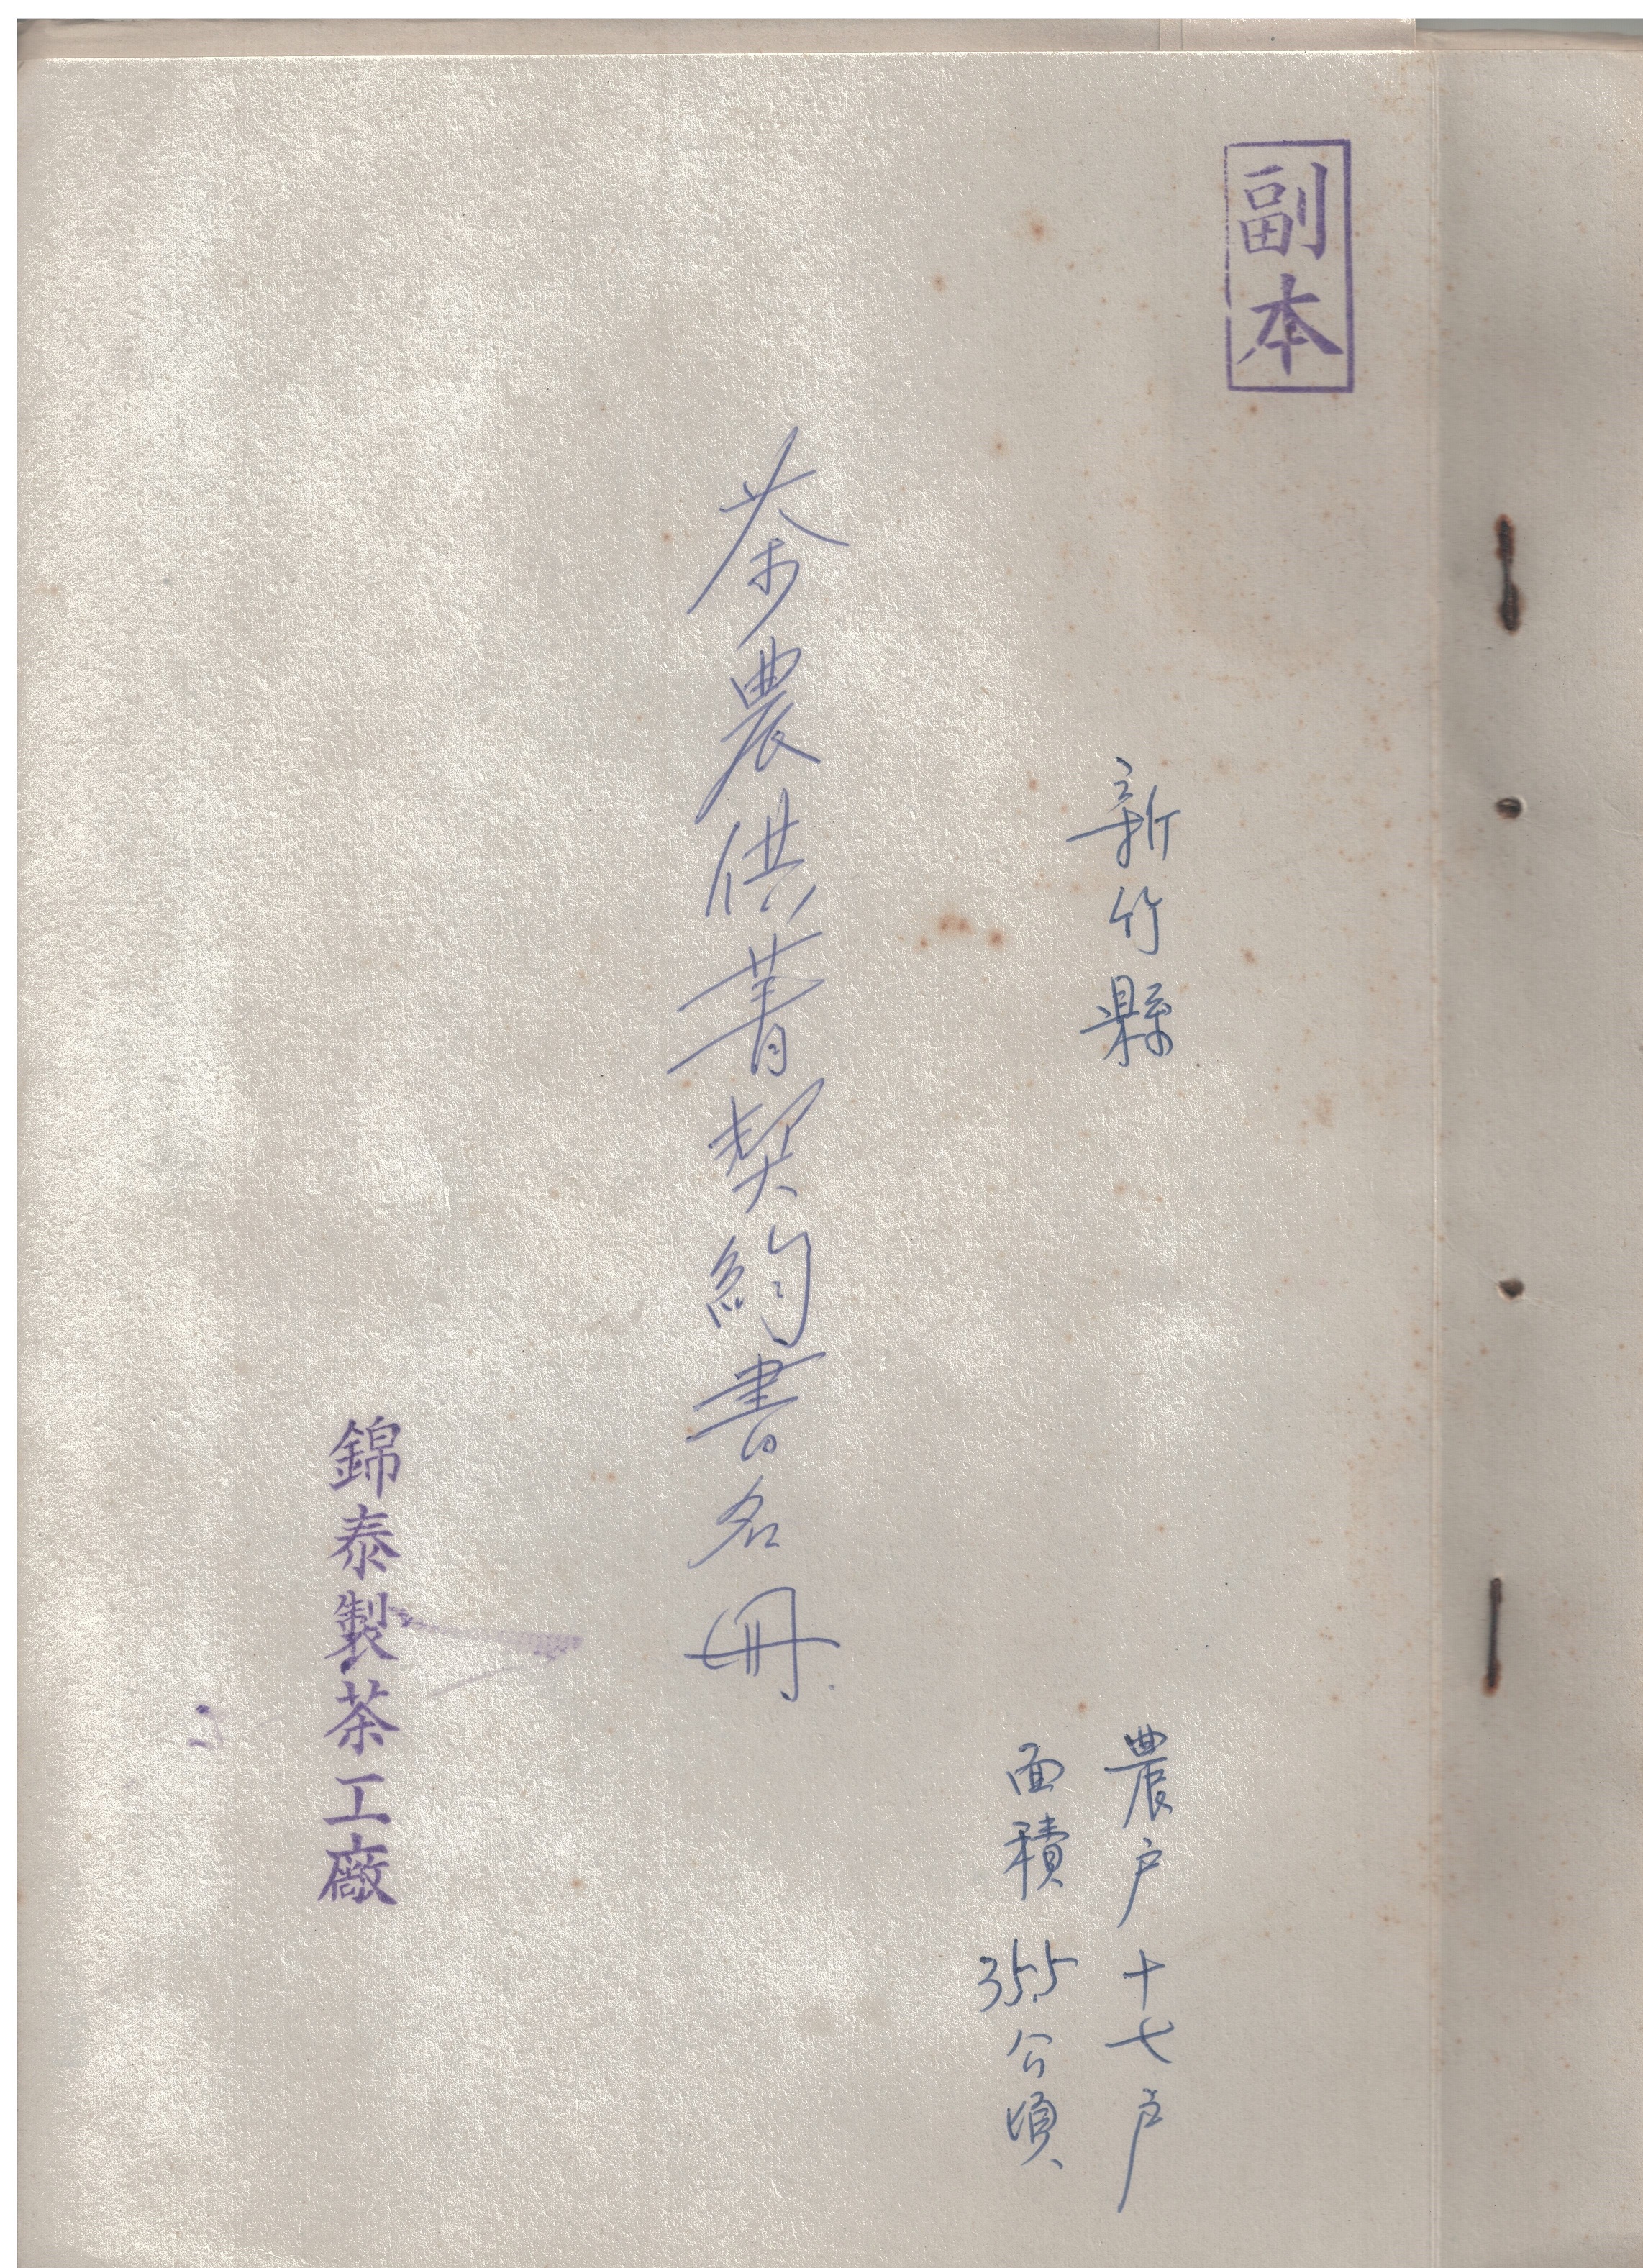 副本
新竹縣
農户十七户
面積 35.5 公頃
茶農供菁契約書名冊
錦泰製茶工廠